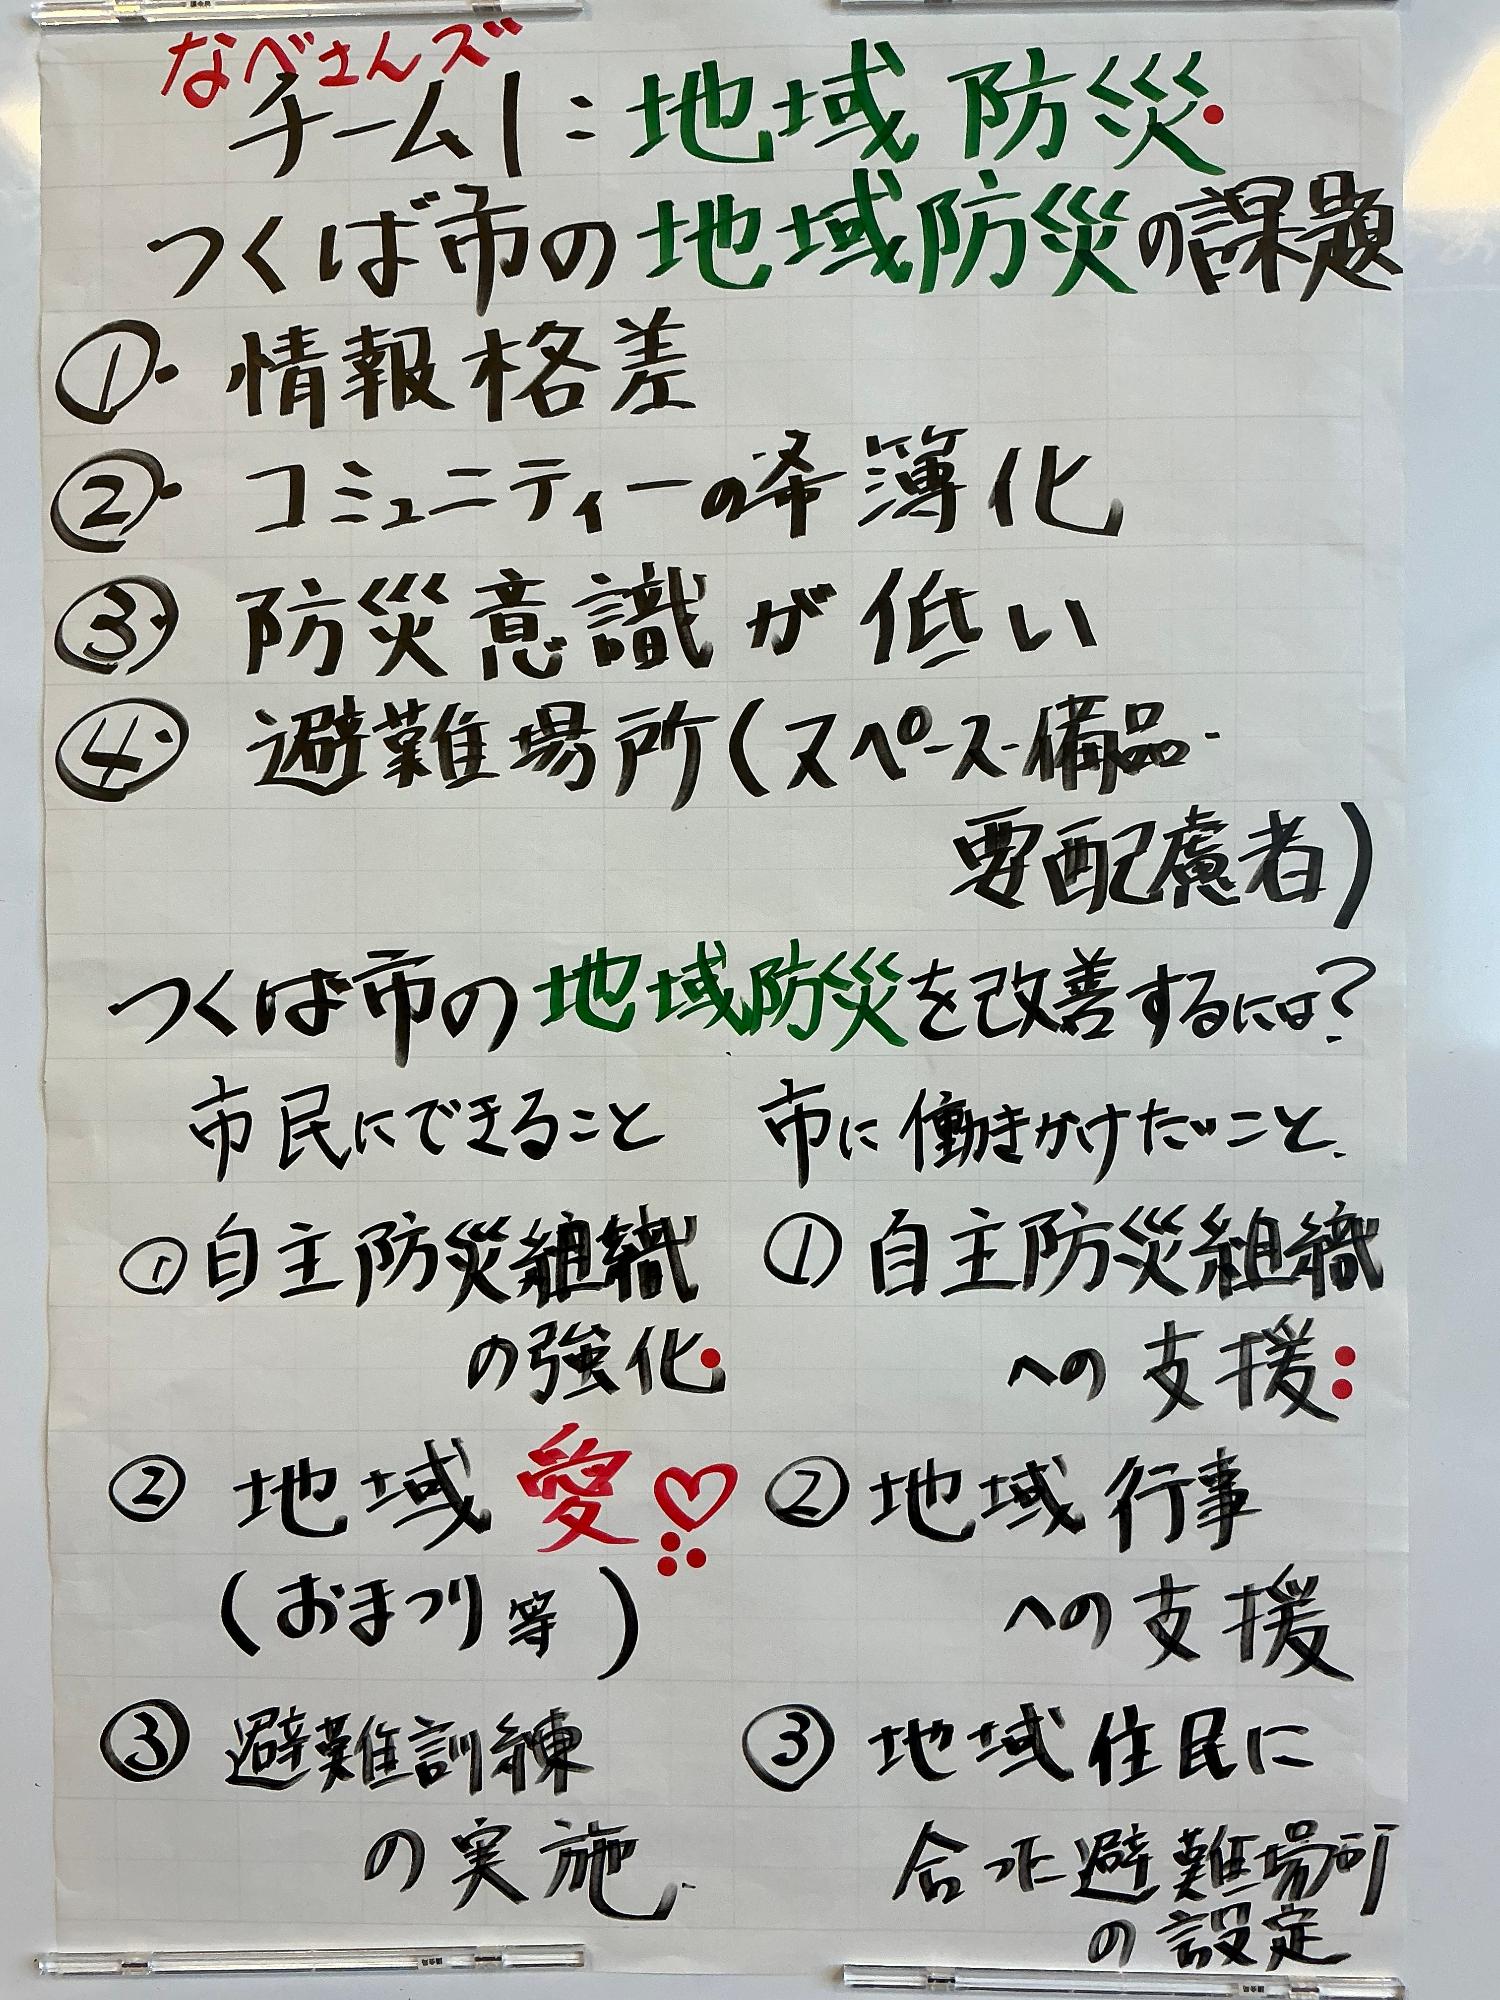 なべさんズ
チーム1:地域防災
つくば市の地域防災の課題
①・情報格差
②・コミュニティーの希簿化
③・防災意識が低い
④・避難場所(スペース・備品・
要配慮者)
つくば市の地域防災を改善するには?
市民にできること
①自主防災組織
の強化
②地域愛♡
(おまつり等)
③避難訓練
の実施
市に働きかけたいこと
①自主防災組織
への支援
②地域行事
への支援
③地域住民に
合った避難場所
の設定